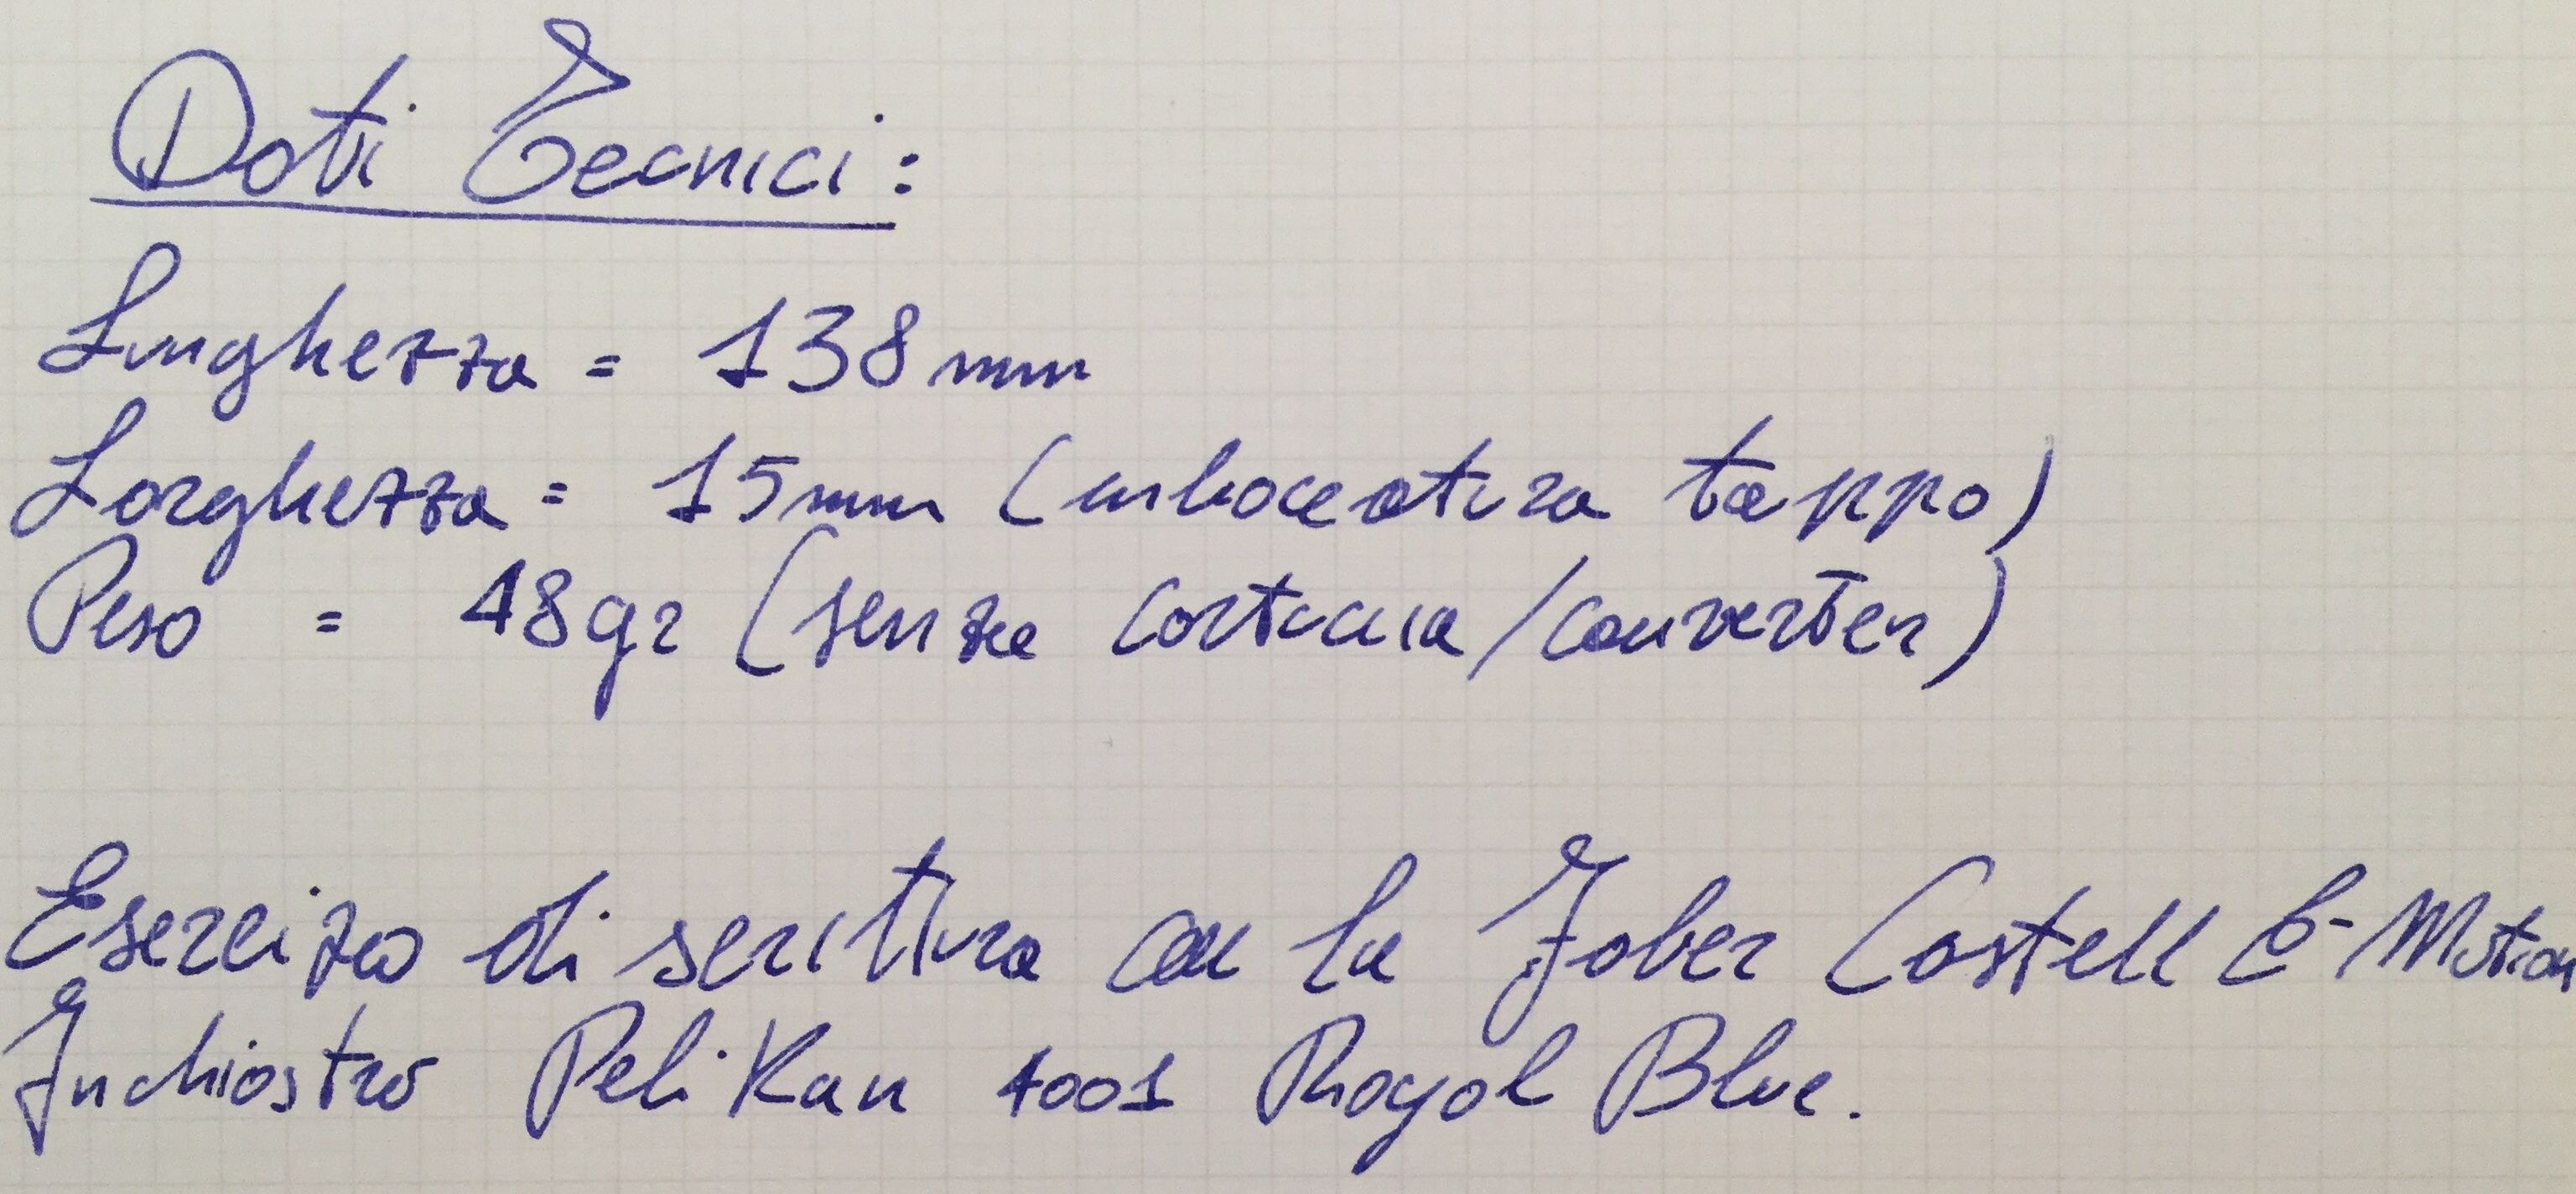 Dati Tecnici:
Lunghezza = 138mm
Larghezza = 15mm (imboccatura tappo)
Peso = 48gr (senza cartuccia/converter)
Esercizio di scrittura con la Faber Castell E-Motion
Inchiostro Pelikan 4001 Royal Blue.